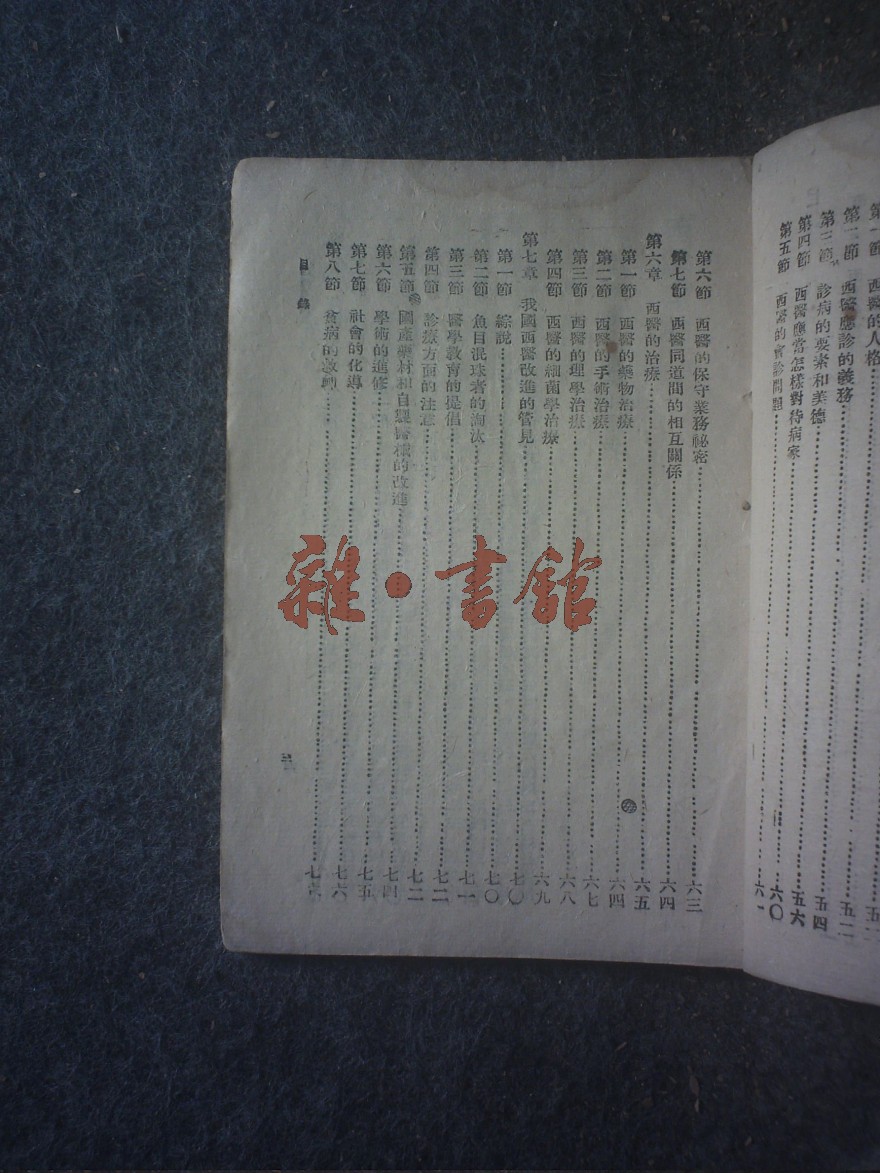 第一節 西醫的人格……五二
第二節 西醫應診的義務……五四
第三節 診病的要素和美德……五六
第四節 西醫應當怎樣對待病家……六〇
第五節 西醫的會診問題……六一
第六節 西醫的保守業務祕密……六三
第七節 西醫同道間的相互關係……六四
第六章 西醫的治療……六五
第一節 西醫的藥物治療……六四
第二節 西醫的手術治療……六七
第三節 西醫的理學治療……六八
第四節 西醫的細菌學治療……六九
第七章 我國西醫改進的管見……七〇
第一節 綜說……七〇
第二節 魚目混珠者的淘汰……七一
第三節 醫學教育的提倡……七二
第四節 診療方面的注意……七二
第五節 國產藥材和自製醫械的改進……七四
第六節 學術的進修……七五
第七節 社會的化導……七六
第八節 貧病的救助……七
目錄
雜·書館